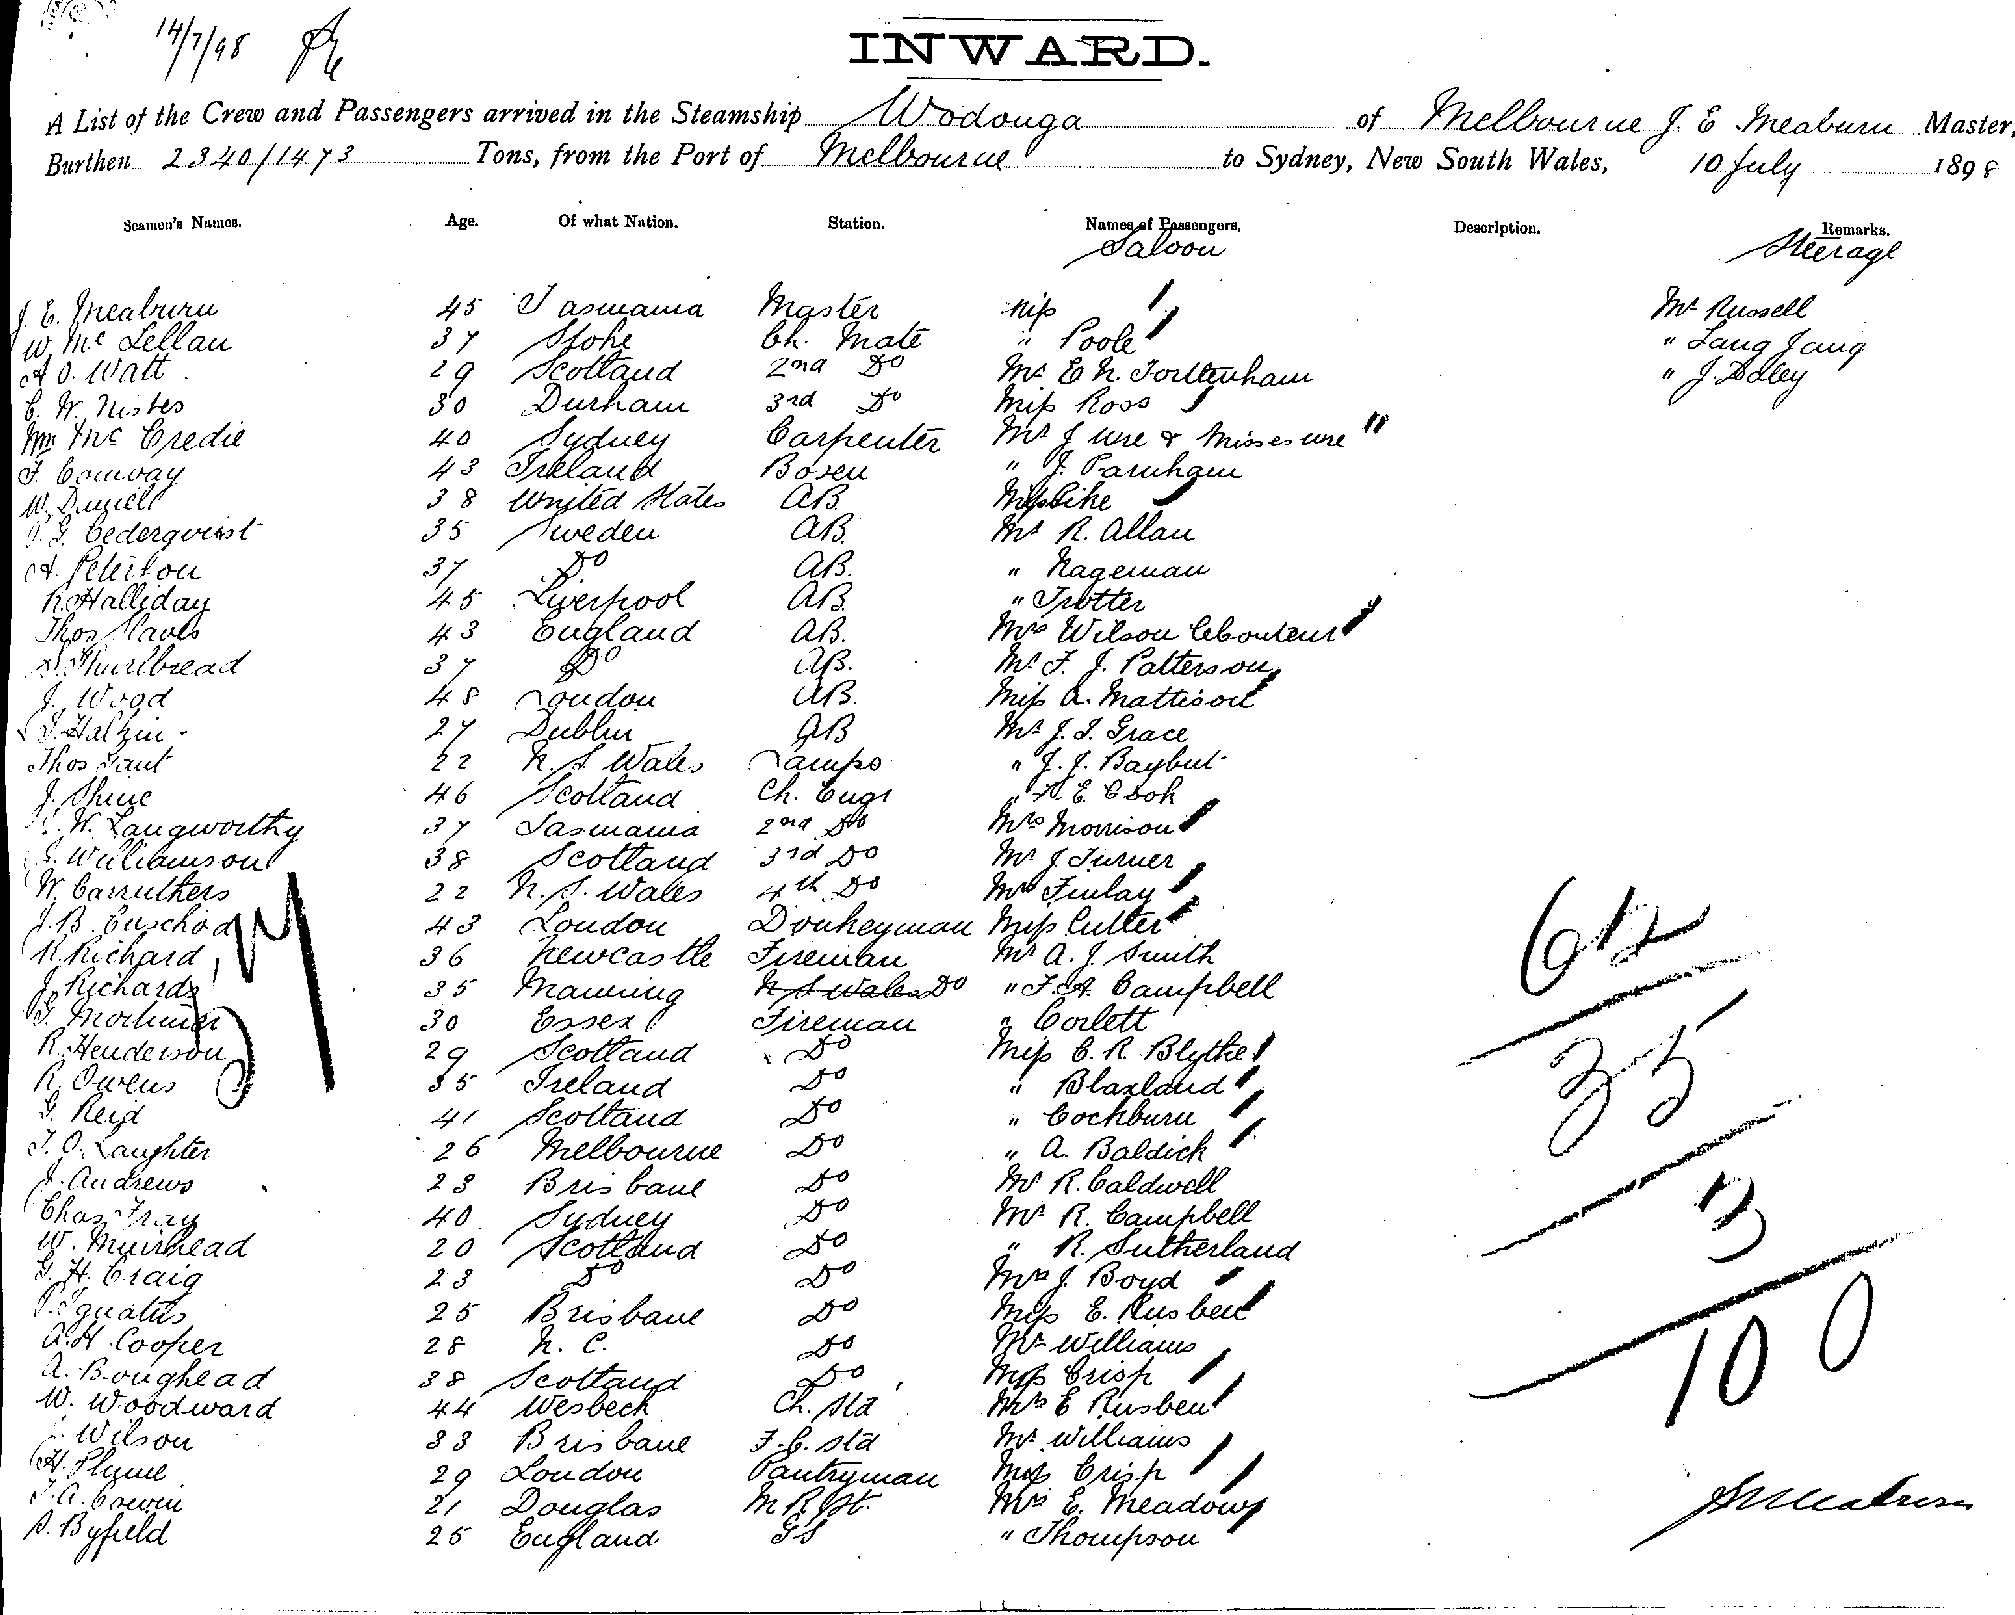 14/7/98
INWARD.
A List of the Crew and Passengers arrived in the Steamship Wodonga of Melbourne J. E Meaburn Master,
Burthen 2340/1473 Tons, from the Port of Melbourne to Sydney, New South Wales, 10 July 1898
Seamen's Names. Age. Of what Nation. Station. Names of Passengers, Description. Remarks.
Saloon Steerage
J. E. Meaburn 45 Tasmania Master Miss Mr Russell
W. Mc Lellan 37 Stoke Ch. Mate " Poole " Lang Jang
A O. Watt 29 Scotland 2nd Do Mr E N. Tottenham " J.
C. W. Nisbes 30 Durham 3rd Do Miss Ross
Wm Mc Credie 40 Sydney Carpenter Mr J Ure & Misses Ure
F. Conway 43 Ireland Bosen " J. Parnham
W. Daniell 38 United States AB. Miss Pike
G. Cederqvist 35 Sweden AB. Mr R. Allan
A. Peterson 37 Do AB. " Nageman
R. Halliday 45 Liverpool AB. " Trotter
Thos Slaves 43 England AB. Mrs Wilson
Shurlbread 37 Do AB. Mr F. J. Patterson
J. Wood 48 London AB. Miss A. Mattison
J. Halpin 27 Dublin AB Mr J. J. Grace
Thos Gaut 22 N. S. Wales Lamps " J. J. Baybut
J. Shine 46 Scotland Ch. Engr " E. Cook
W. Langworthy 37 Tasmania 2nd Do Mrs Morrison
J. Williamson 38 Scotland 3rd Do Mr J. Turner
W. Carruthers 22 N. S. Wales 4th Do Mrs Finlay
J. B. Euschod 43 London Donkeyman Miss Cutter
R. Richard 36 Newcastle Fireman Mr A. J. Smith
J. Richards 35 Manning N S Wales Do " F. A. Campbell
G. Mortimer 30 Essex Fireman " Corlett
R. Henderson 29 Scotland Do Miss C. R. Blythe
R. Owens 35 Ireland Do " Blaxland
G. Reid 41 Scotland Do " Cockburn
T. O. Laughter 26 Melbourne Do " A. Baldick
J. Andrews 23 Brisbane Do Mr R. Caldwell
Chas Fray 40 Sydney Do Mr R. Campbell
W. Muirhead 20 Scotland Do " R. Sutherland
G. H. Craig 23 Do Do Mrs J. Boyd
P. Ignatus 25 Brisbane Do Miss E. Rusben
A. H. Cooper 28 N. C. Do Mr Williams
A. Boughead 38 Scotland Do Miss Crisp
W. Woodward 44 Wesbech Ch. Std Mrs E Rusben
Wilson 33 Brisbane F. C. Std Mr Williams
H. Plume 29 London Pantryman Miss Crisp
T. A. Corwin 21 Douglas M. R. St. Mrs E. Meadows
S. Byfield 25 England GS " Thompson
62
35
3
100